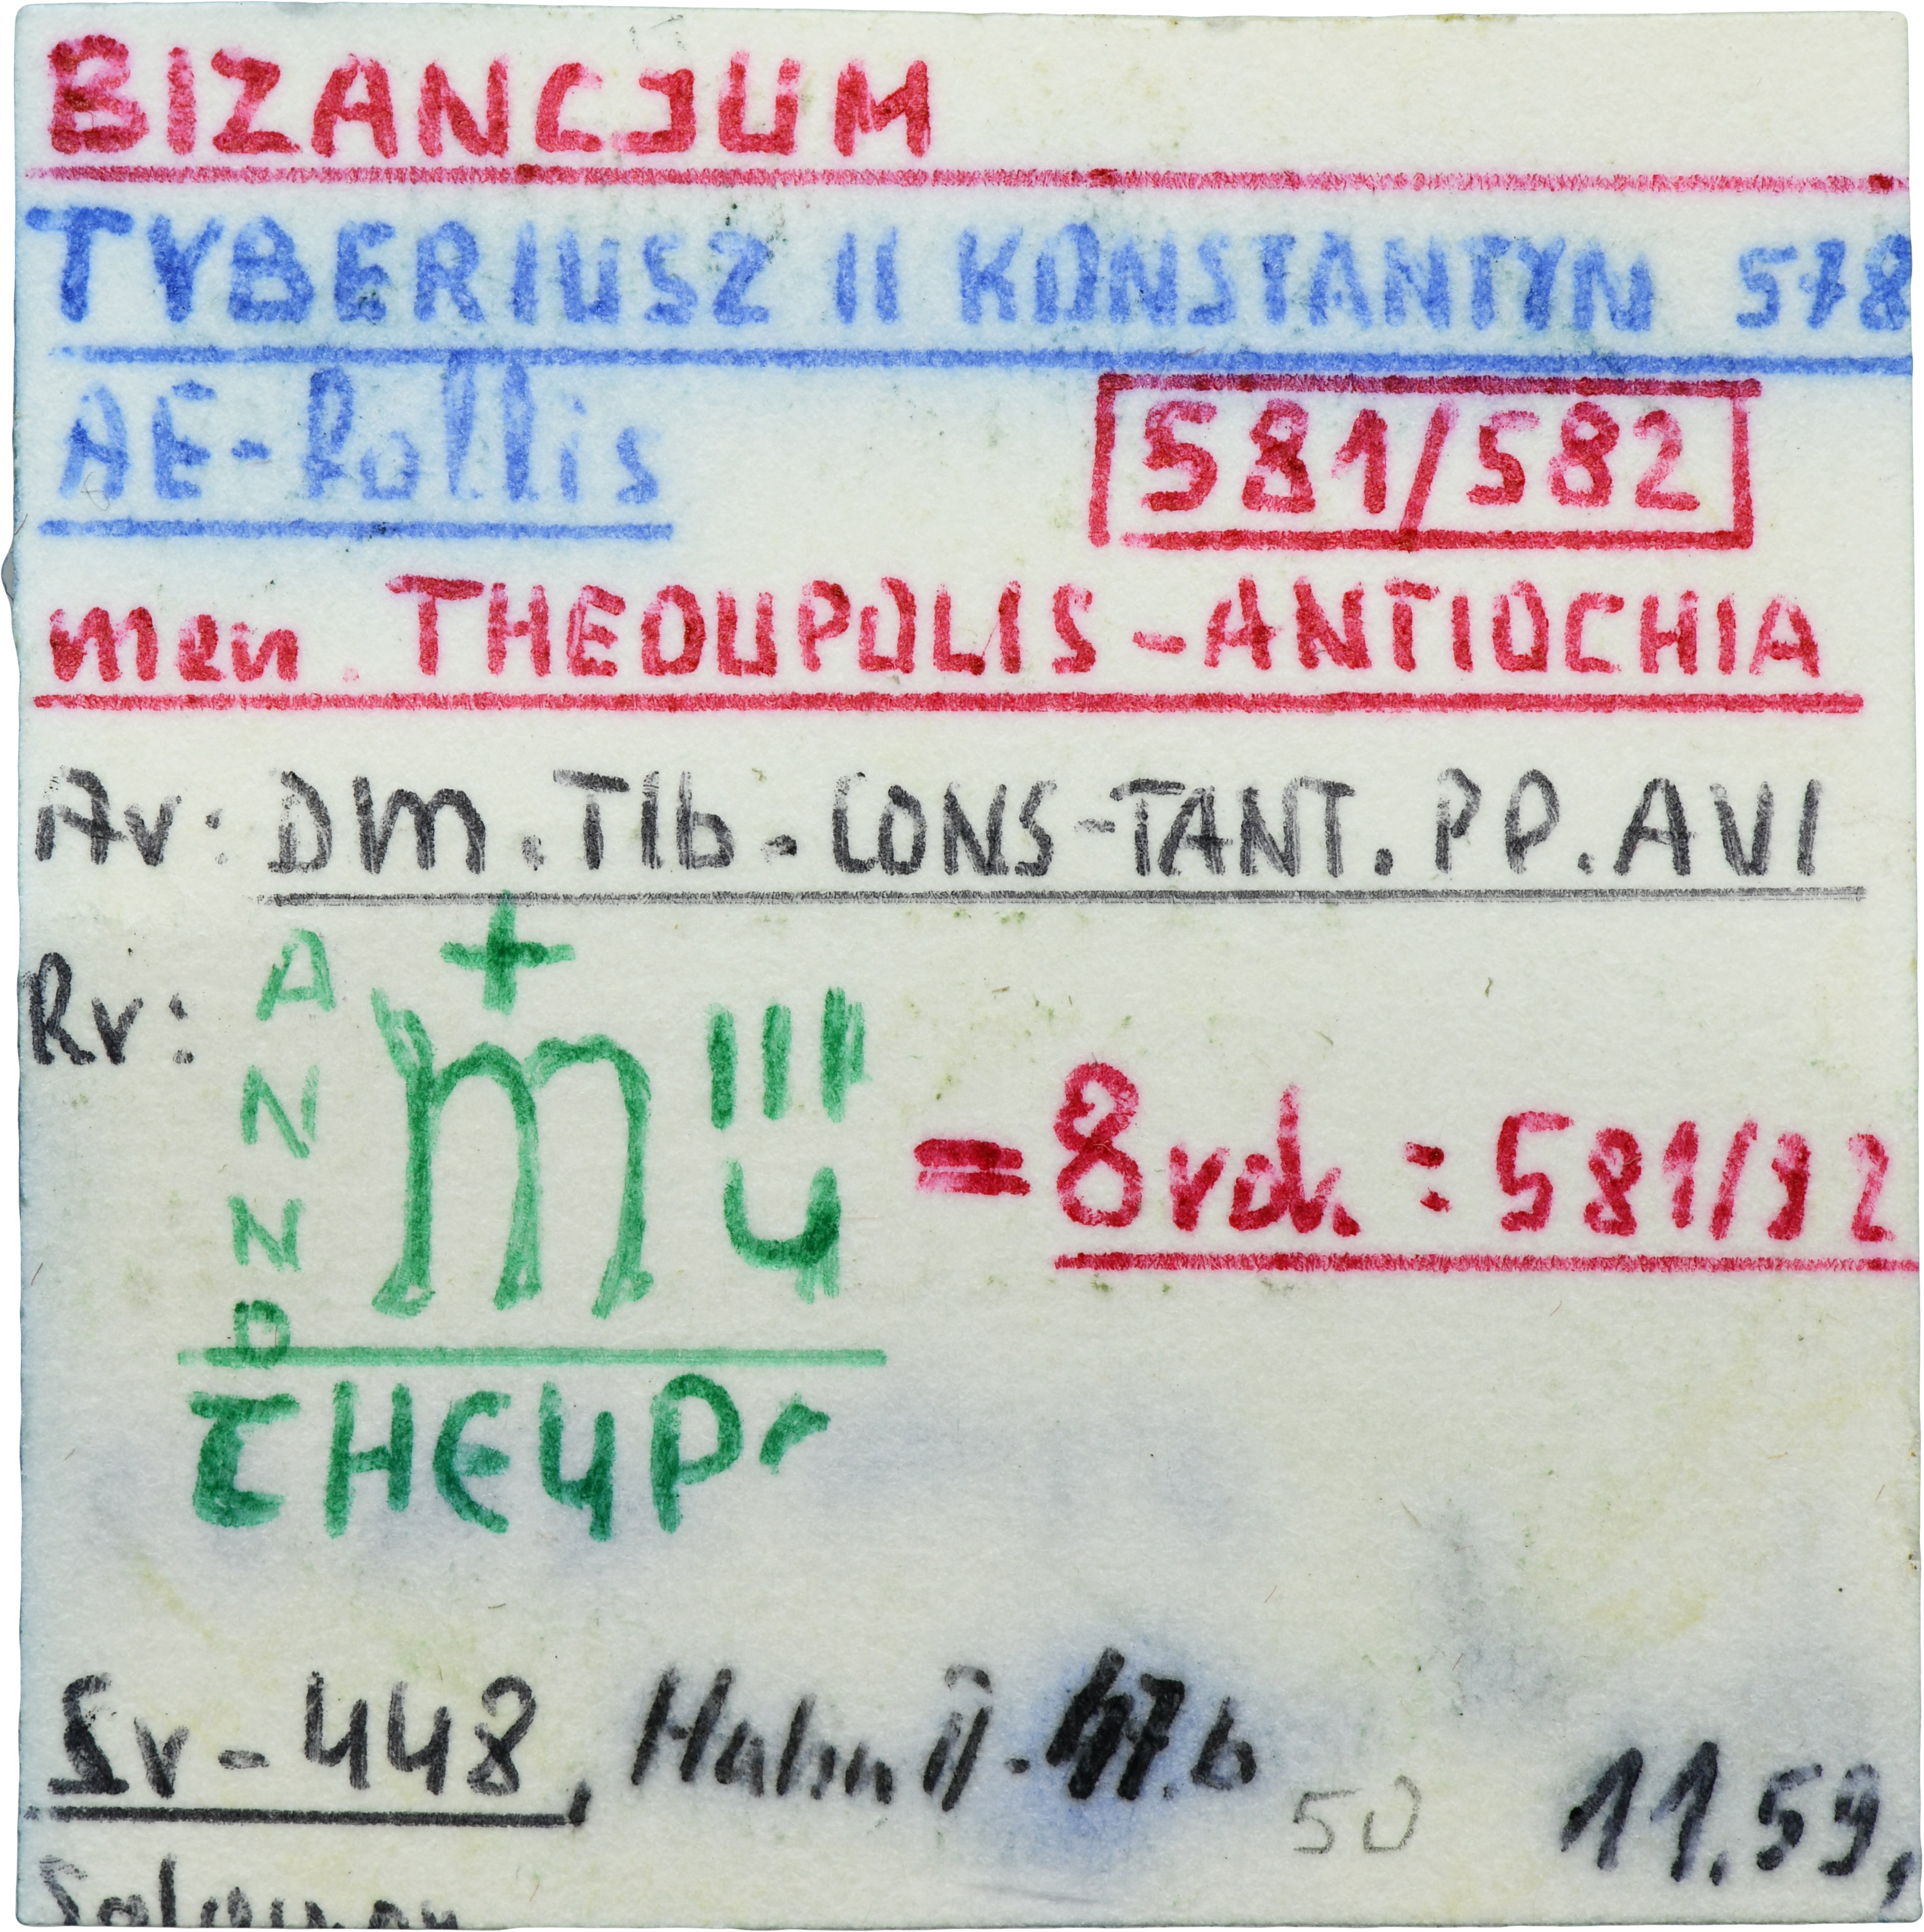 BIZANCJUM
TYBERIUSZ II KONSTANTYN 578
AE-follis 581/582
men. THEOUPOLIS-ANTIOCHIA
Av: Dm.TIb.CONS-TANT.PP.AVI
Rv: ANNO + m III u = 8 rok: 581/82
THEUP'
Sv-448, Hahn II-47.b 50 11.59,